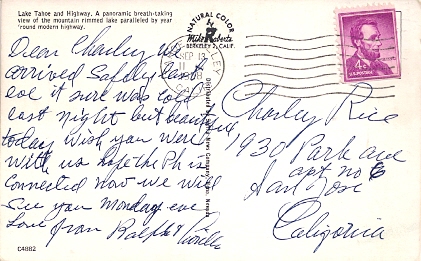 Lake Tahoe and Highway. A panoramic breath-taking
view of the mountain rimmed lake paralleled by year
'round modern highway.
Dear Charley we
arrived Safely last
eve it sure was cold
last night but beautiful
today wish you were
with us hope the Ph is
Connected now we will
See you Monday eve
Love from Ralph &
C4882
NATURAL COLOR
by
Mike Roberts
BERKELEY 2, CALIF.
Distributed by News Company, Reno, Nevada
SEP 13
11
4¢
U.S. POSTAGE
Charley Rice
1930 Park ave
apt no 6
San Jose
California